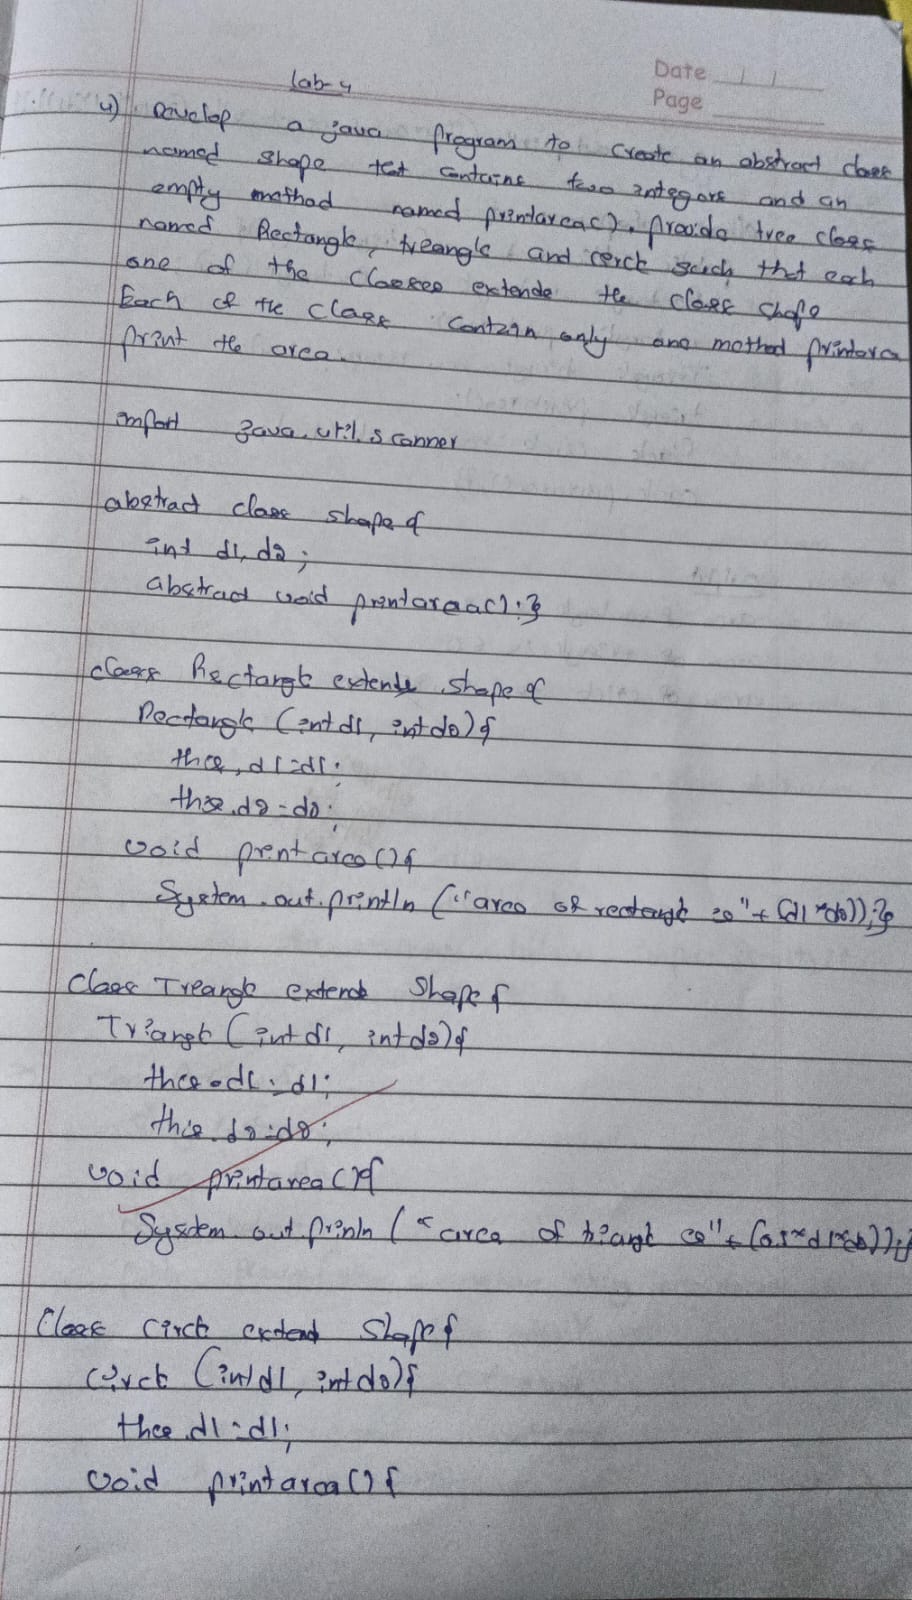 Lab-4
Date
Page
4) Develop a java program to create an abstract class
named shape that contains two integers and an
empty method named printarea(). Provide tree class
named Rectangle, treangle and cerck such that each
one of the classes extends the class shape
Each of the class contain only one method printarea
print the area.
import java.util.scanner
abstract class shape{
int d1, d2;
abstract void printarea();}
class Rectangle extends shape{
Rectangle (int d1, int d2){
this.d1=d1;
this.d2=d2;
void printarea(){
System.out.println ("area of rectangle is"+(d1*d2));}
class Treangle extends Shape{
Triangle (int d1, int d2){
this.d1=d1;
this.d2=d2;
void printarea(){
System.out.prinln ("area of triangle is"+(0.5*d1*d2));}
Class circle extend Shape{
circle (int d1, int d2){
this.d1=d1;
void printarea(){